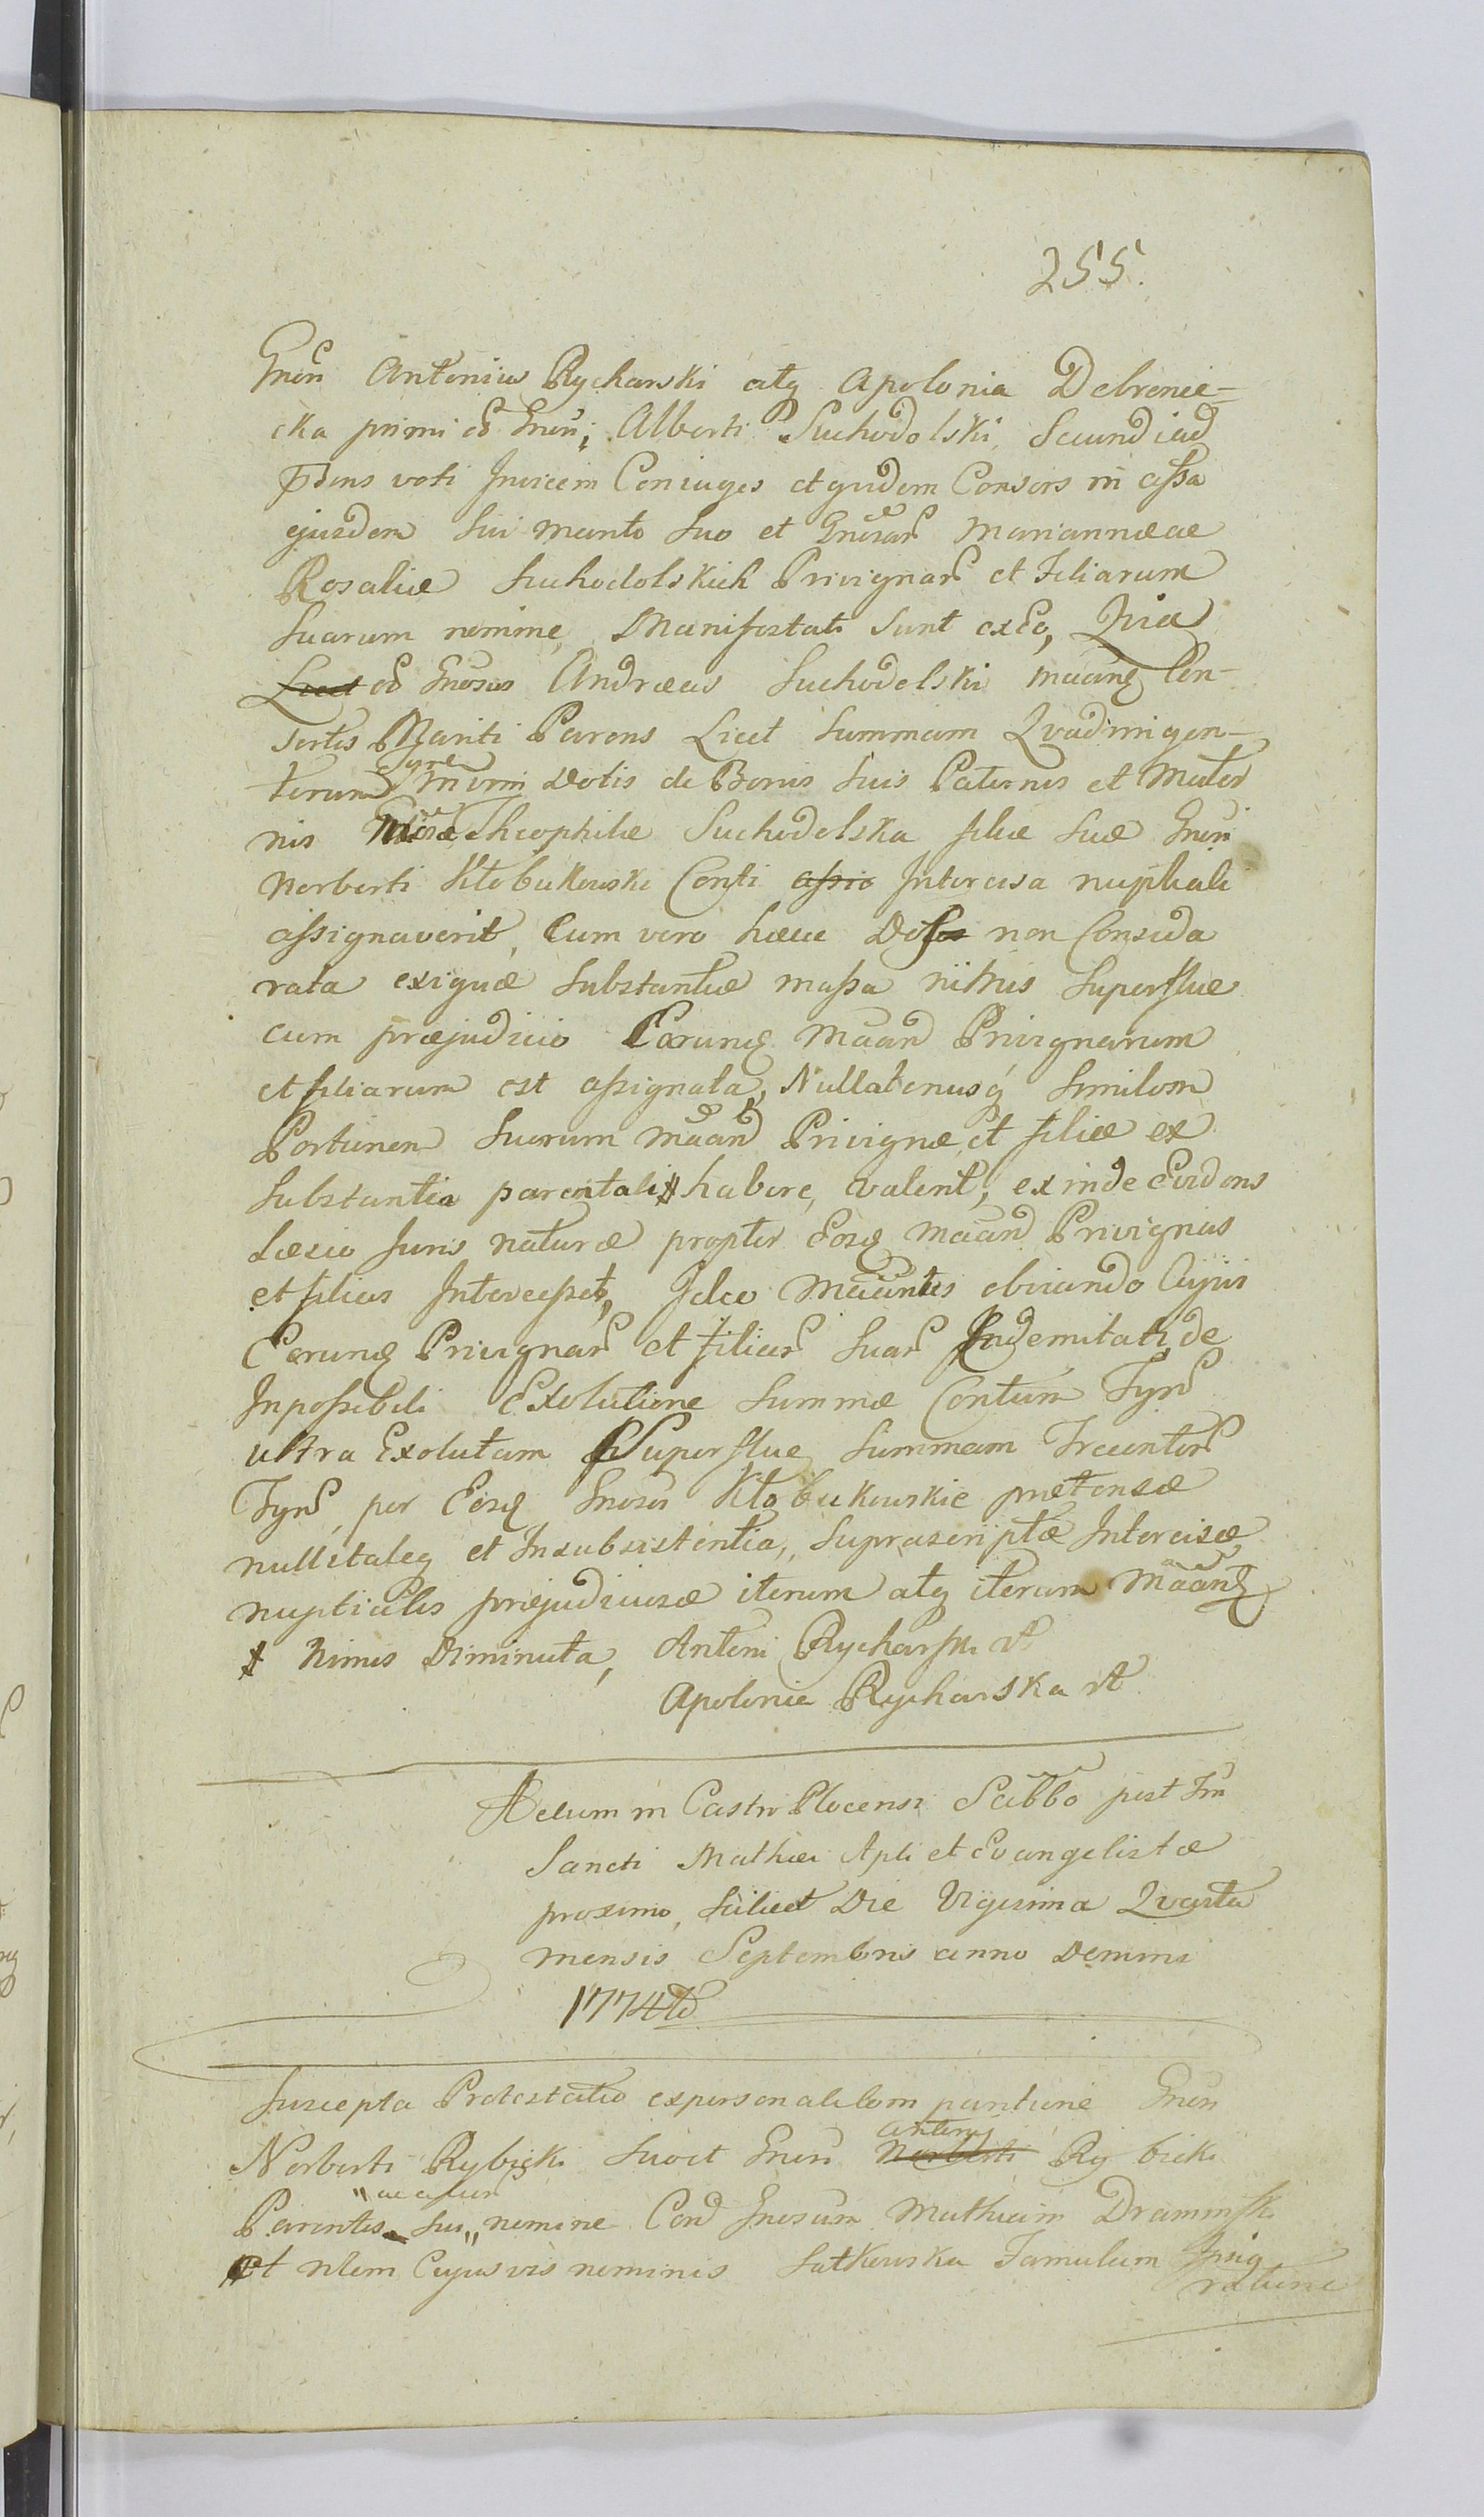 255.
Gnen Antonius Rycharski atq Apolonia Dobrenie=
cka primi oð Gnen; Alberti Suchodolski, Secundi ad
pðens voti Invicem Coniuges et quidem Consors in assa
ejusdem Sui marito Suo et Gnosar Mariannææ
Rosaliæ Suchodolskich Privignar et Filiarum
Suarum nomine, Manifestati sunt ex Eo, Quia
Licet oð Gnosus Andræas Suchodolski maanq Con-
sortis Mariti Parens Licet Summam Quadringen-
torum Tynf nomi Dotis de Bonis Suis Paternis et Mater
nis Gnosæ Theophilæ Suchodolska filiæ suæ Gnen
Norberti Kłobukowski Conti assio Intercisa nuptiali
assignaverit, Cum vero hæcce Dos non Conside
rata exiguæ Substantiæ massa nimis Superflue
cum præjudicio Earunq Maand Privignarum
et filiarum est assignata, Nullatenusq Similem
Portionem Suarum maand Privignæ et filiæ ex
Substantia parentali # habere, valent, exinde Evidens
Læsio Juris naturæ propter Easq maand Privignas
et filias Intercesset, Ideo Maantes obviando Cujus
Earunq Privignar et filiar Suar Indemnitati de
Inpossibili Exolutione Summæ Centum Tynf
ultra Exolutam Superflue Summam Trecentor
Tynf, per Eosq Gnosos Kłobukowskie prætensæ
nullitateq et Insubsistentia, Suprascriptæ Intercisæ
nuptialis præjudiciosæ iterum atq iterum Maantq
# Nimis Diminuta, Antoni Rycharski
Apolonia Rycharska
Actum in Castro Plocensi Sabbo post Fm
Sancti Mathæi Apli et Evangelistæ
proximo, Scilicet Die Vigesima Quarta
mensis Septembris anno Domini
1774to
Suscepta Protestatio ex personali comparitione Gnen
Antonij
Norberti Rybicki Suo et Gnen Norberti Rybicki
Parentis Sui nomine Con Gnosum Mathiam Dramiński
et nlem Cujusvis nominis Sutkowska Famulum Ipsiq
ratione